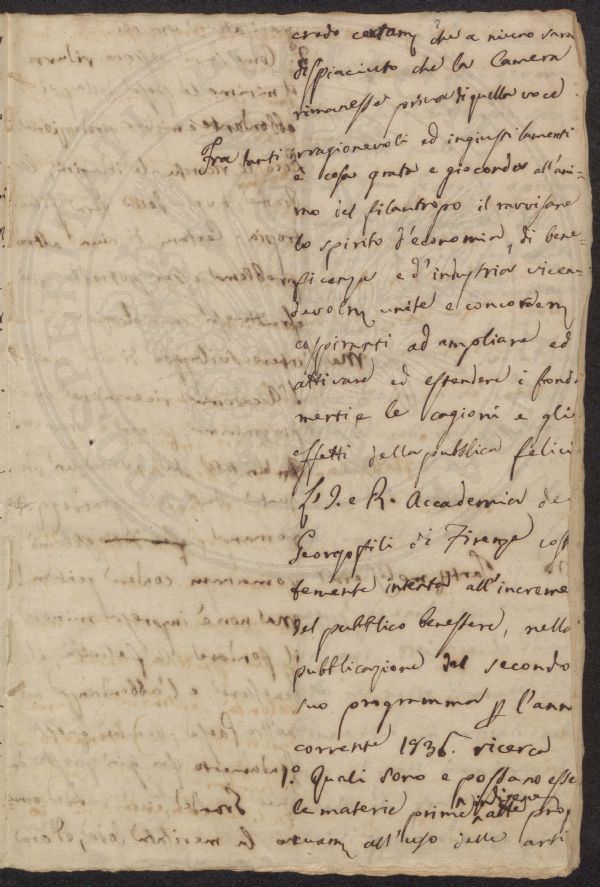 credo certam che a niuno sara
dispiaciuto che la Camera
rimanesse priva di quella voce
Fra tanti irragionevoli ed ingiusti lamenti
è cosa grata e gioconda all'ani-
mo del filantropo il ravvisare
lo spirito d'economia, di bene-
ficenza e d'industria vicen-
devolm unite e concordem
cospiranti ad ampliare ed
attivare ed estendere i fonda
menti e le cagioni e gli
effetti della pubblica felici
L'I. e R. Accademia de
Georgofili di Firenze cost
temente intenta all'increme
del pubblico benessere, nella
pubblicazione del secondo
suo programma p l'ann
corrente 1836. ricerca
1.° Quali sono e possano esse
le materie prime indigene atte prop
cuam all'uso delle arti